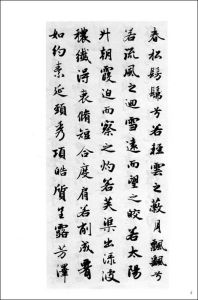 春松髣髴兮若輕雲之蔽月飄飄兮
若流風之迴雪遠而望之皎若太陽
升朝霞迫而察之灼若芙渠出淥波
穠纖得衷脩短合度肩若削成
如約素延頸秀項皓質呈露芳澤